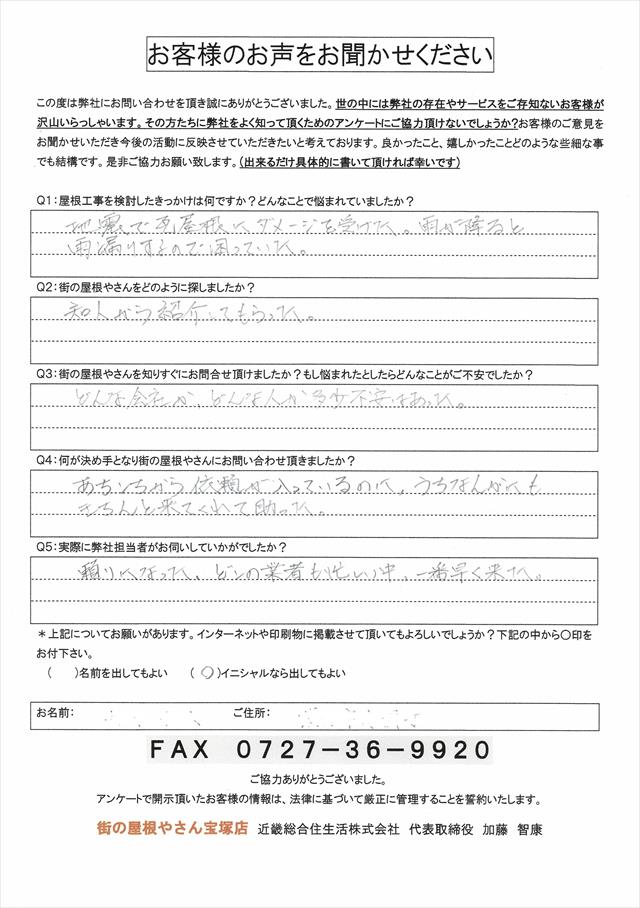 お客様のお声をお聞かせください
この度は弊社にお問い合わせを頂き誠にありがとうございました。世の中には弊社の存在やサービスをご存知ないお客様が
沢山いらっしゃいます。その方たちに弊社をよく知って頂くためのアンケートにご協力頂けないでしょうか?お客様のご意見を
お聞かせいただき今後の活動に反映させていただきたいと考えております。良かったこと、嬉しかったことどのような些細な事
でも結構です。是非ご協力お願い致します。(出来るだけ具体的に書いて頂ければ幸いです)
Q1:屋根工事を検討したきっかけは何ですか?どんなことで悩まれていましたか?
地震で瓦屋根にダメージを受けた。雨が降ると
雨漏りするので困っていた。
Q2:街の屋根やさんをどのように探しましたか?
知人から紹介してもらった。
Q3:街の屋根やさんを知りすぐにお問合せ頂けましたか?もし悩まれたとしたらどんなことがご不安でしたか?
どんな会社か、どんな人か多少不安はあった。
Q4:何が決め手となり街の屋根やさんにお問い合わせ頂きましたか?
あちこちから依頼が入っているのに、うちなんかにも
きちんと来てくれて助った。
Q5:実際に弊社担当者がお伺いしていかがでしたか?
頼りになった、どこの業者も忙しい中、一番早く来た。
*上記についてお願いがあります。インターネットや印刷物に掲載させて頂いてもよろしいでしょうか?下記の中から〇印を
お付下さい。
( )名前を出してもよい (〇)イニシャルなら出してもよい
お名前: ご住所:
FAX 0727-36-9920
ご協力ありがとうございました。
アンケートで開示頂いたお客様の情報は、法律に基づいて厳正に管理することを誓約いたします。
街の屋根やさん宝塚店 近畿総合住生活株式会社 代表取締役 加藤 智康